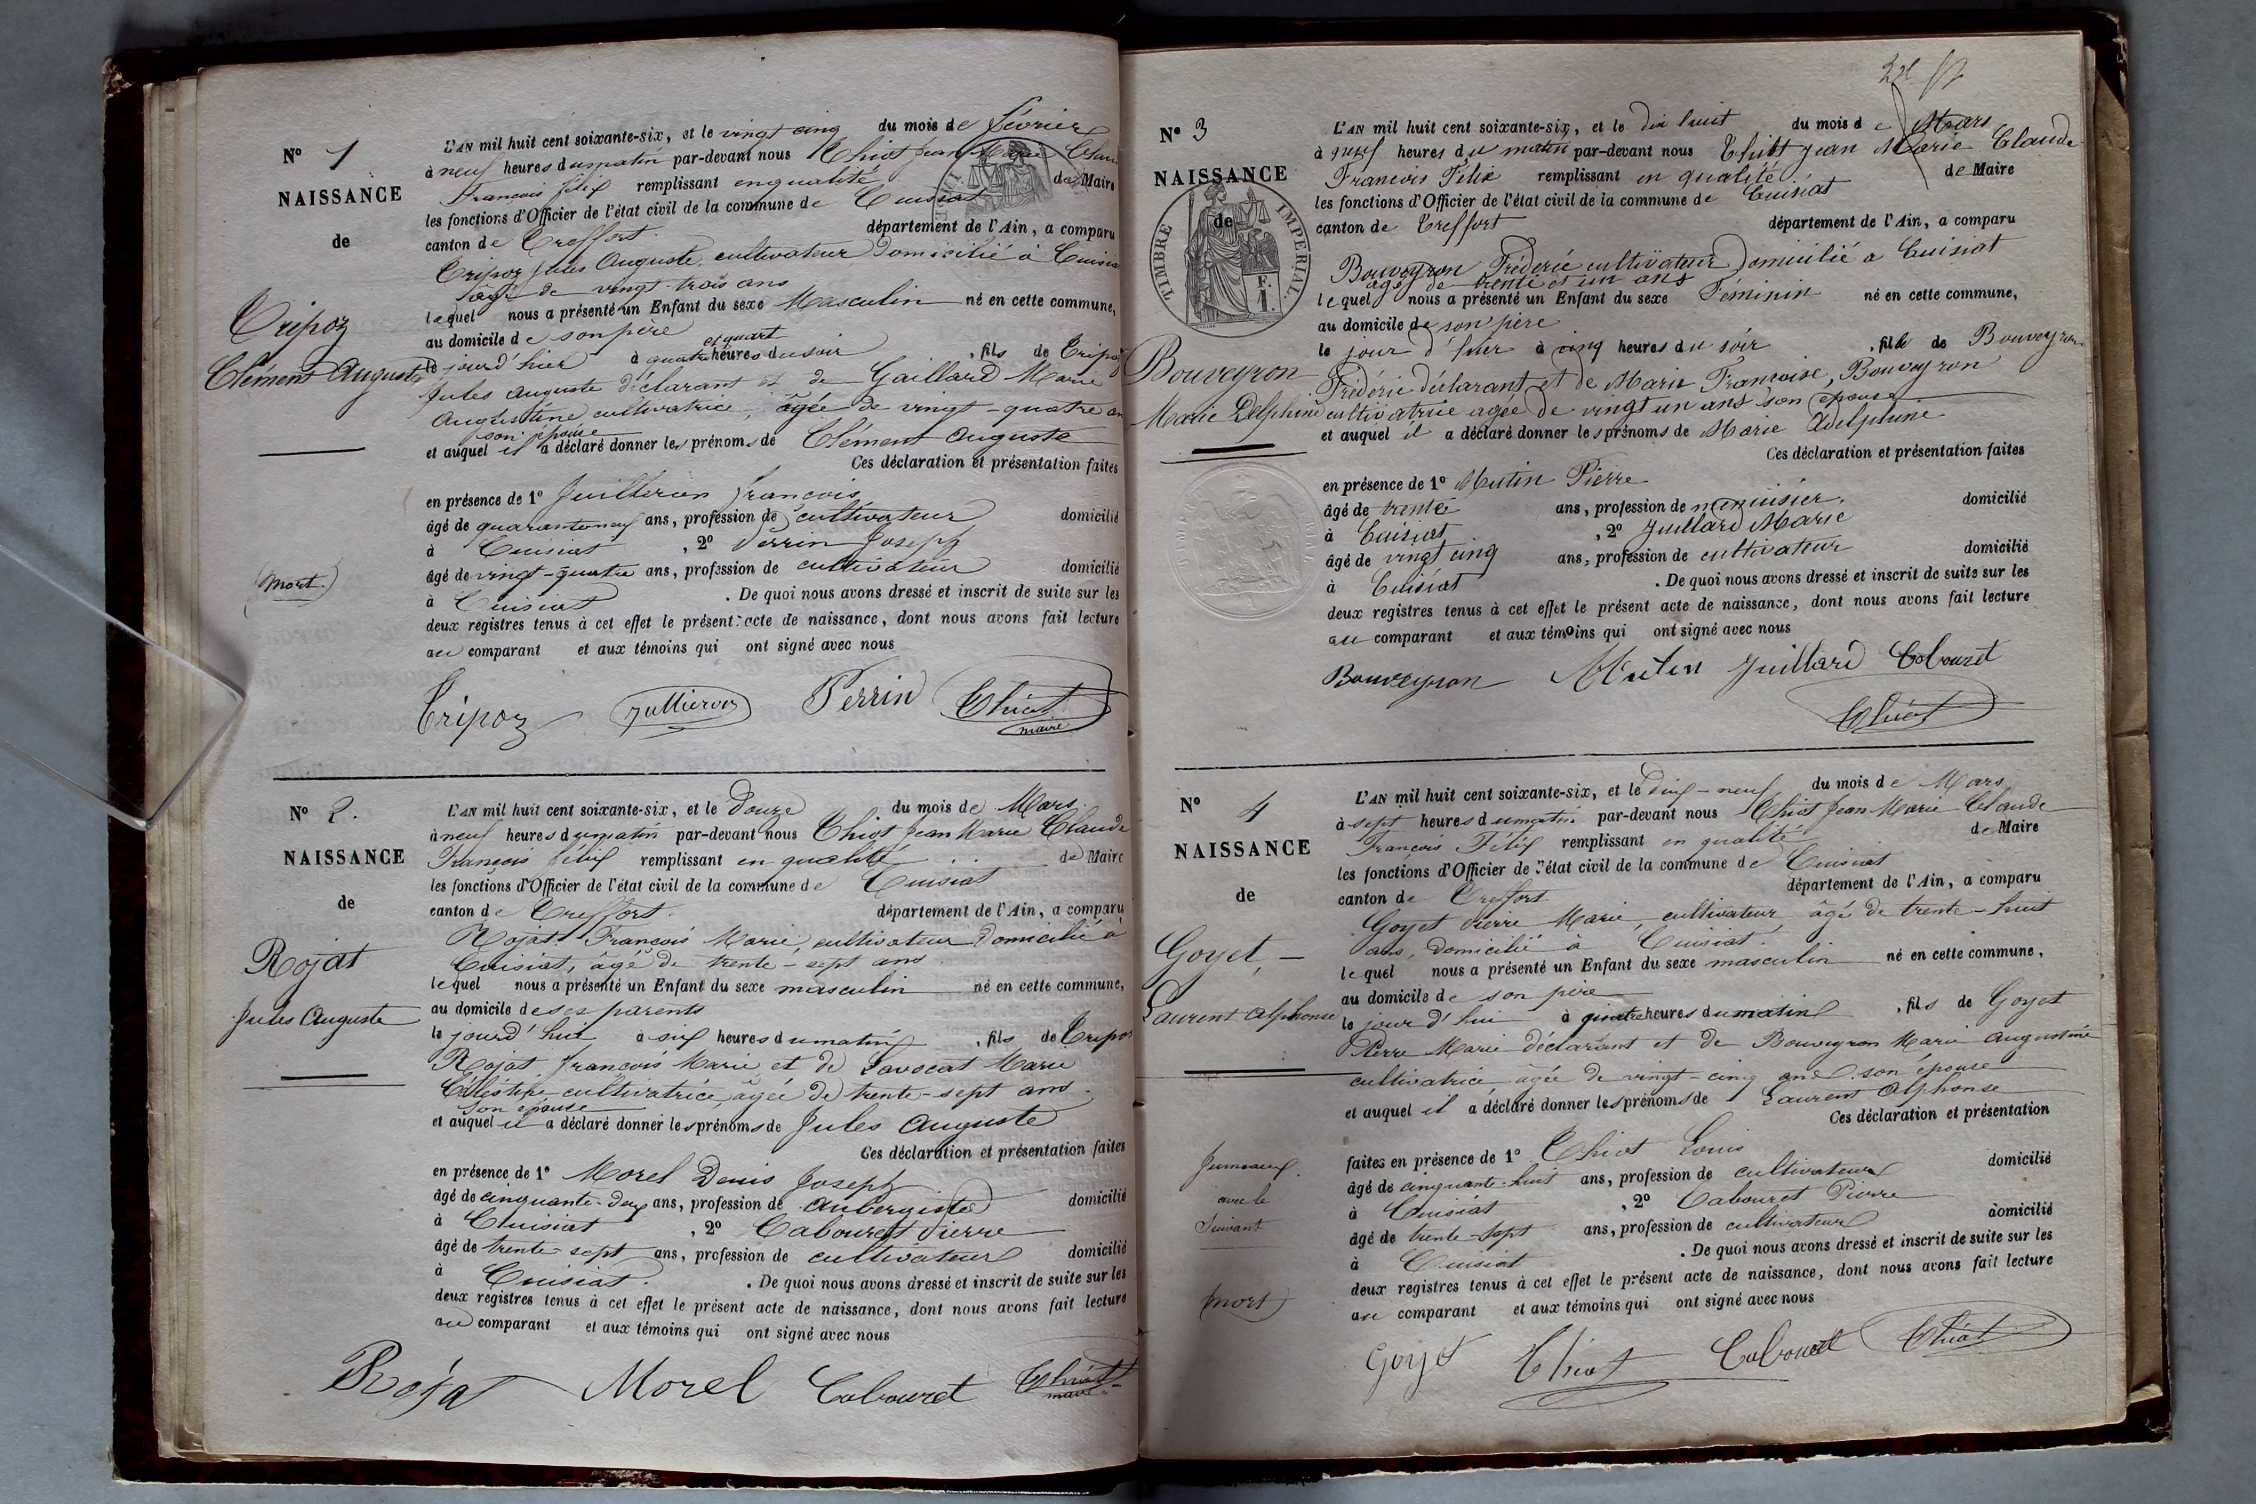 N° 1
NAISSANCE
de
Tripoz
Clément Auguste
(mort)
L'AN mil huit cent soixante-six, et le vingt cinq du mois de février
à neuf heures du matin par-devant nous Thiot Jean Marie Clau
François Félix remplissant en qualité de Maire
les fonctions d'Officier de l'état civil de la commune de Cuisiat
canton de Treffort département de l'Ain, a comparu
Tripoz Jules Auguste, cultivateur domicilié à Cuisia
âgé de vingt-trois ans
lequel nous a présenté un Enfant du sexe Masculin né en cette commune,
au domicile de son père
et quart
le jour d'hier à quatre heures du soir, fils de Tripoz
Jules Auguste déclarant et de Gaillard Marie
Augustine cultivatrice, âgée de vingt-quatre an
son épouse
et auquel il a déclaré donner les prénoms de Clément Auguste
Ces déclaration et présentation faites
en présence de 1° Juilleron François
âgé de quarante neuf ans, profession de cultivateur domicilié
à Cuisiat, 2° Perrin Joseph
âgé de vingt-quatre ans, profession de cultivateur domicilié
à Cuisiat. De quoi nous avons dressé et inscrit de suite sur les
deux registres tenus à cet effet le présent acte de naissance, dont nous avons fait lecture
au comparant et aux témoins qui ont signé avec nous
Tripoz Perrin Thiot
maire
N° 2.
NAISSANCE
de
Rojat
Jules Auguste
L'AN mil huit cent soixante-six, et le douze du mois de Mars
à neuf heures du matin par-devant nous Thiot Jean Marie Claude
François Félix remplissant en qualité de Maire
les fonctions d'Officier de l'état civil de la commune de Cuisiat
canton de Treffort. département de l'Ain, a comparu
Rojat François Marie, cultivateur domicilié à
Cuisiat, âgé de trente-sept ans
lequel nous a présenté un Enfant du sexe masculin né en cette commune,
au domicile de ses parents
le jourd'hui à six heures du matin, fils de Tripoz
Rojat François Marie et de Savocat Marie
Célestine cultivatrice, âgée de trente-sept ans
son épouse
et auquel il a déclaré donner les prénoms de Jules Auguste
Ces déclaration et présentation faites
en présence de 1° Morel Denis Joseph
âgé de cinquante-deux ans, profession de Aubergiste domicilié
à Cuisiat, 2° Cabouret Pierre
âgé de trente-sept ans, profession de cultivateur domicilié
à Cuisiat. De quoi nous avons dressé et inscrit de suite sur les
deux registres tenus à cet effet le présent acte de naissance, dont nous avons fait lecture
au comparant et aux témoins qui ont signé avec nous
Rojat Morel Cabouret Thiot
maire
N° 3
NAISSANCE
de
TIMBRE IMPERIAL
F. 1.
Bouveyron
Marie Delphine
L'AN mil huit cent soixante-six, et le dix huit du mois de Mars
à heures du matin par-devant nous Thiot Jean Marie Claude
François Félix remplissant en qualité de Maire
les fonctions d'Officier de l'état civil de la commune de Cuisiat
canton de Treffort département de l'Ain, a comparu
Bouveyron Fréderic cultivateur domicilié a Cuisiat
agé de trente et un ans
lequel nous a présenté un Enfant du sexe Féminin né en cette commune,
au domicile de son père
le jour d'hier à cinq heures du soir, fille de Bouveyron
Fréderic déclarant, et de Marie Françoise, Bouveyron
cultivatrice agée de vingt un ans son épouse
et auquel il a déclaré donner les prénoms de Marie Adelphine
Ces déclaration et présentation faites
en présence de 1° Mutin Pierre
âgé de trente ans, profession de menuisier. domicilié
à Cuisiat, 2° Juillard Marie
âgé de vingt cinq ans, profession de cultivateur domicilié
à Cuisiat. De quoi nous avons dressé et inscrit de suite sur les
deux registres tenus à cet effet le présent acte de naissance, dont nous avons fait lecture
au comparant et aux témoins qui ont signé avec nous
Bouveyron Mutin Juillard Cabouret
Thiot
N° 4
NAISSANCE
de
Goyet,
Laurent Alphonse
Jumeaux
avec le
Suivant
mort
L'AN mil huit cent soixante-six, et le dix-neuf du mois de Mars
à sept heures du matin par-devant nous Thiot Jean Marie Claude
François Félix remplissant en qualité de Maire
les fonctions d'Officier de l'état civil de la commune de Cuisiat
canton de Treffort département de l'Ain, a comparu
Goyet Pierre Marie, cultivateur, âgé de trente-huit
ans, domicilié à Cuisiat
lequel nous a présenté un Enfant du sexe masculin né en cette commune,
au domicile de son père
le jour d'hui à quatre heures du matin, fils de Goyet
Pierre Marie déclarant et de Bouveyron Marie Augustine
cultivatrice, âgée de vingt-cinq ans son épouse
et auquel il a déclaré donner les prénoms de Laurent Alphonse
Ces déclaration et présentation
faites en présence de 1° Thiot Louis
âgé de cinquante-huit ans, profession de cultivateur domicilié
à Cuisiat, 2° Cabouret Pierre
âgé de trente-sept ans, profession de cultivateur domicilié
à Cuisiat. De quoi nous avons dressé et inscrit de suite sur les
deux registres tenus à cet effet le présent acte de naissance, dont nous avons fait lecture
au comparant et aux témoins qui ont signé avec nous
Goyet Thiot Cabouret Thiot